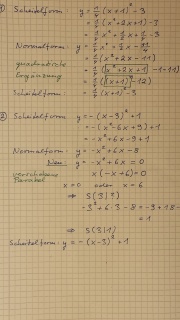 ① Scheitelform: y = 1/4 (x+1)² - 3
= 1/4 (x² + 2x + 1) - 3
= 1/4 x² + 1/2 x + 1/4 - 3
Normalform: y = 1/4 x² + 1/2 x - 11/4
quadratische = 1/4 (x² + 2x - 11)
Ergänzung = 1/4 (x² + 2x + 1 - 1 - 11)
= 1/4 ((x+1)² - 12)
Scheitelform: = 1/4 (x+1)² - 3
② Scheitelform: y = -(x-3)² + 1
= -(x² - 6x + 9) + 1
= -x² + 6x - 9 + 1
Normalform: y = -x² + 6x - 8
Neu: y = -x² + 6x = 0
verschobene x(-x+6) = 0
Parabel
x = 0 oder x = 6
⇒ S(3|?)
-3² + 6·3 - 8 = -9 + 18 -
= 1
⇒ S(3|1)
Scheitelform: y = -(x-3)² + 1